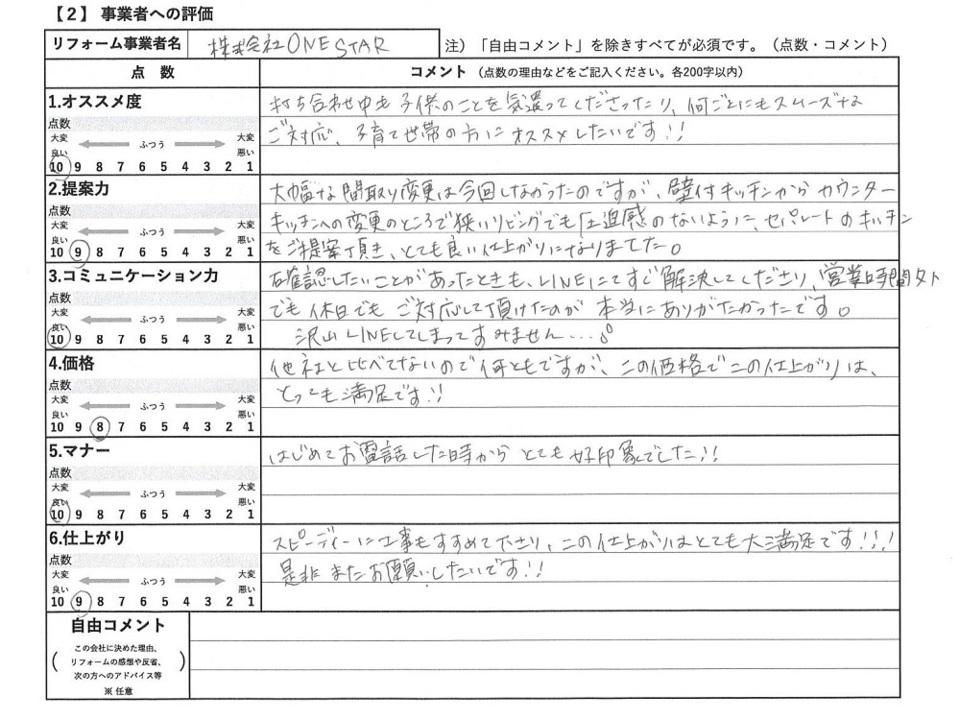 【2】事業者への評価
リフォーム事業者名 株式会社ONE STAR 注）「自由コメント」を除きすべてが必須です。（点数・コメント）
点 数 コメント（点数の理由などをご記入ください。各200字以内）
1.オススメ度
点数
大変良い ふつう 大変悪い
10 9 8 7 6 5 4 3 2 1
打ち合わせ中も子供のことを気遣ってくださったり、何ごとにもスムーズな
ご対応、子育て世帯の方にオススメしたいです!!
2.提案力
点数
大変良い ふつう 大変悪い
10 9 8 7 6 5 4 3 2 1
大幅な間取り変更は今回しなかったのですが、壁付キッチンからカウンター
キッチンへの変更のところで狭いリビングでも圧迫感のないように、セパレートのキッチン
をご提案頂き、とても良い仕上がりになりました。
3.コミュニケーション力
点数
大変良い ふつう 大変悪い
10 9 8 7 6 5 4 3 2 1
確認したいことがあったときも、LINEにてすぐ解決してくださり、営業時間外
でも休日でもご対応して頂けたのが本当にありがたかったです。
沢山LINEしてしまってすみません...
4.価格
点数
大変良い ふつう 大変悪い
10 9 8 7 6 5 4 3 2 1
他社と比べてないので何ともですが、この価格でこの仕上がりは、
とっても満足です!!
5.マナー
点数
大変良い ふつう 大変悪い
10 9 8 7 6 5 4 3 2 1
はじめてお電話した時からとても好印象でした!!
6.仕上がり
点数
大変良い ふつう 大変悪い
10 9 8 7 6 5 4 3 2 1
スピーディーに工事もすすめて下さり、この仕上がりはとても大満足です!!!
是非またお願いしたいです!!
自由コメント
この会社に決めた理由、
リフォームの感想や反省、
次の方へのアドバイス等
※ 任意